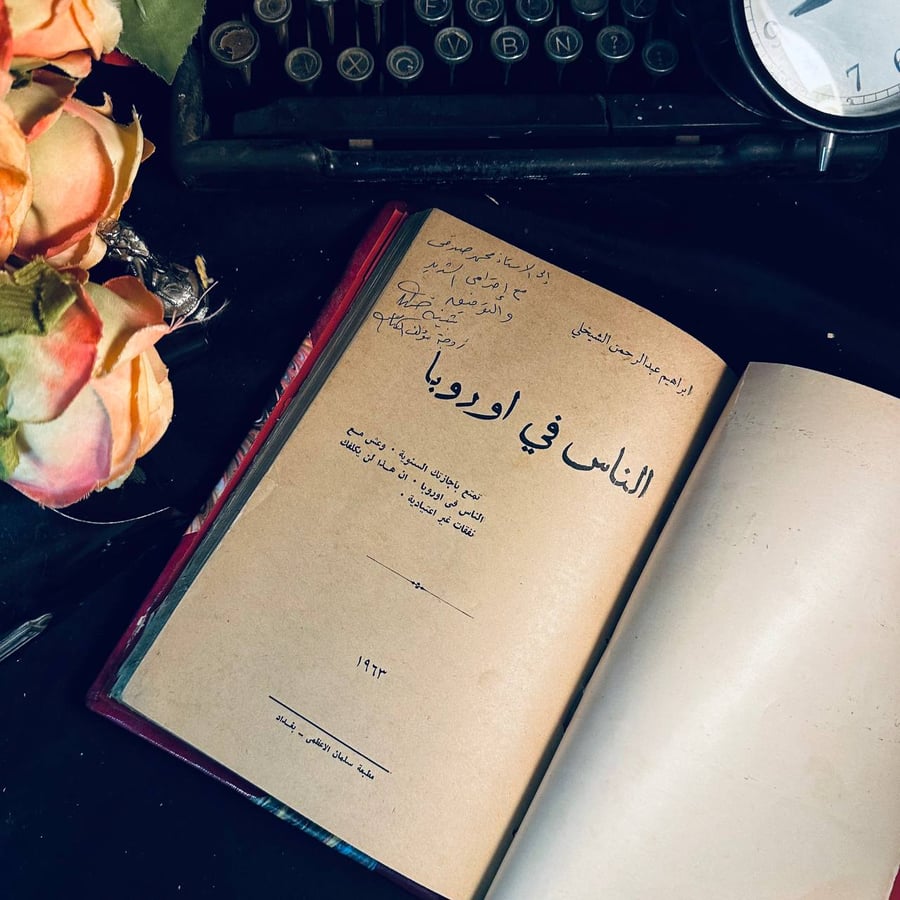 V B N ?
X C
9
7
6
إلى الاستاذ محمد صدقي
مع احترامي الشديد
والتوفيق
زوجة مؤلف الكتاب
ابراهيم عبدالرحمن الشيخلي
الناس في اوروبا
تمتع باجازتك السنوية . وعش مـع
الناس فى اوروبا . ان هـذا لن يكلفك
نفقات غير اعتيادية .
١٩٦٣
مطبعة سلمان الاعظمى – بغـداد